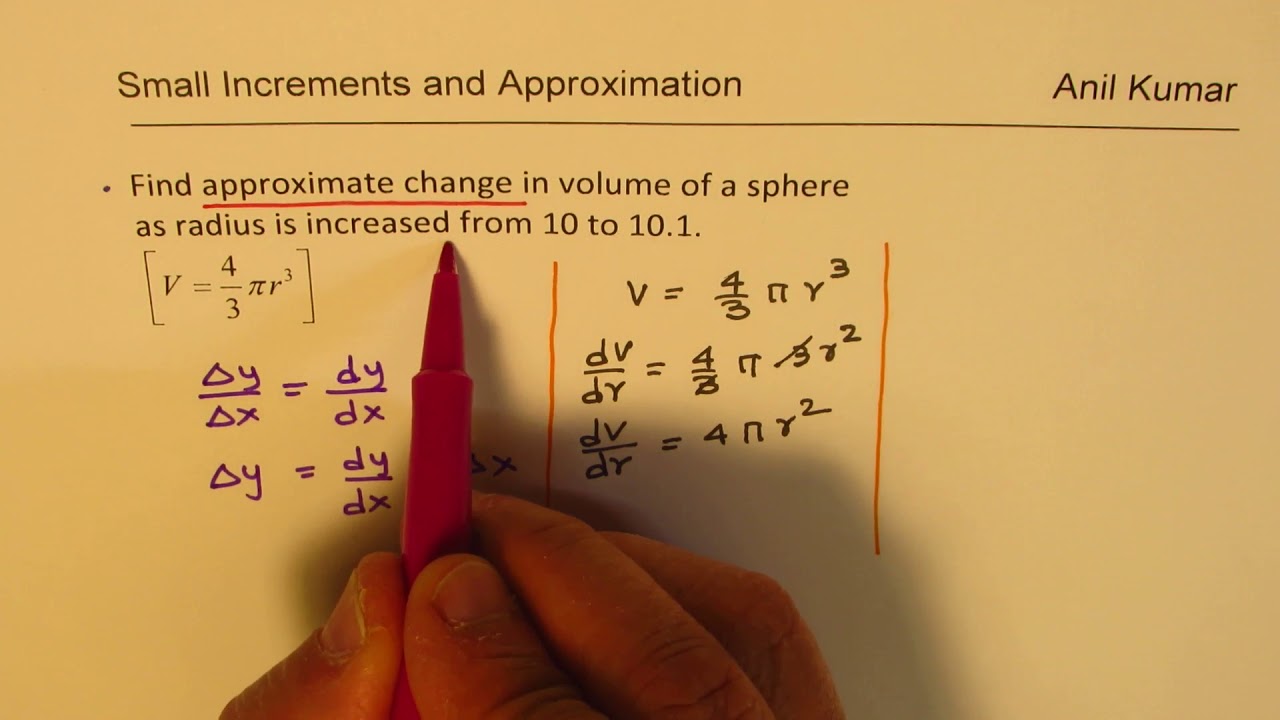 Small Increments and Approximation Anil Kumar
. Find approximate change in volume of a sphere
as radius is increased from 10 to 10.1.
[V = 4/3 πr³]
Δy/Δx = dy/dx
Δy = dy/dx Δx
V = 4/3 π r³
dV/dr = 4/3 π 3r²
dV/dr = 4πr²